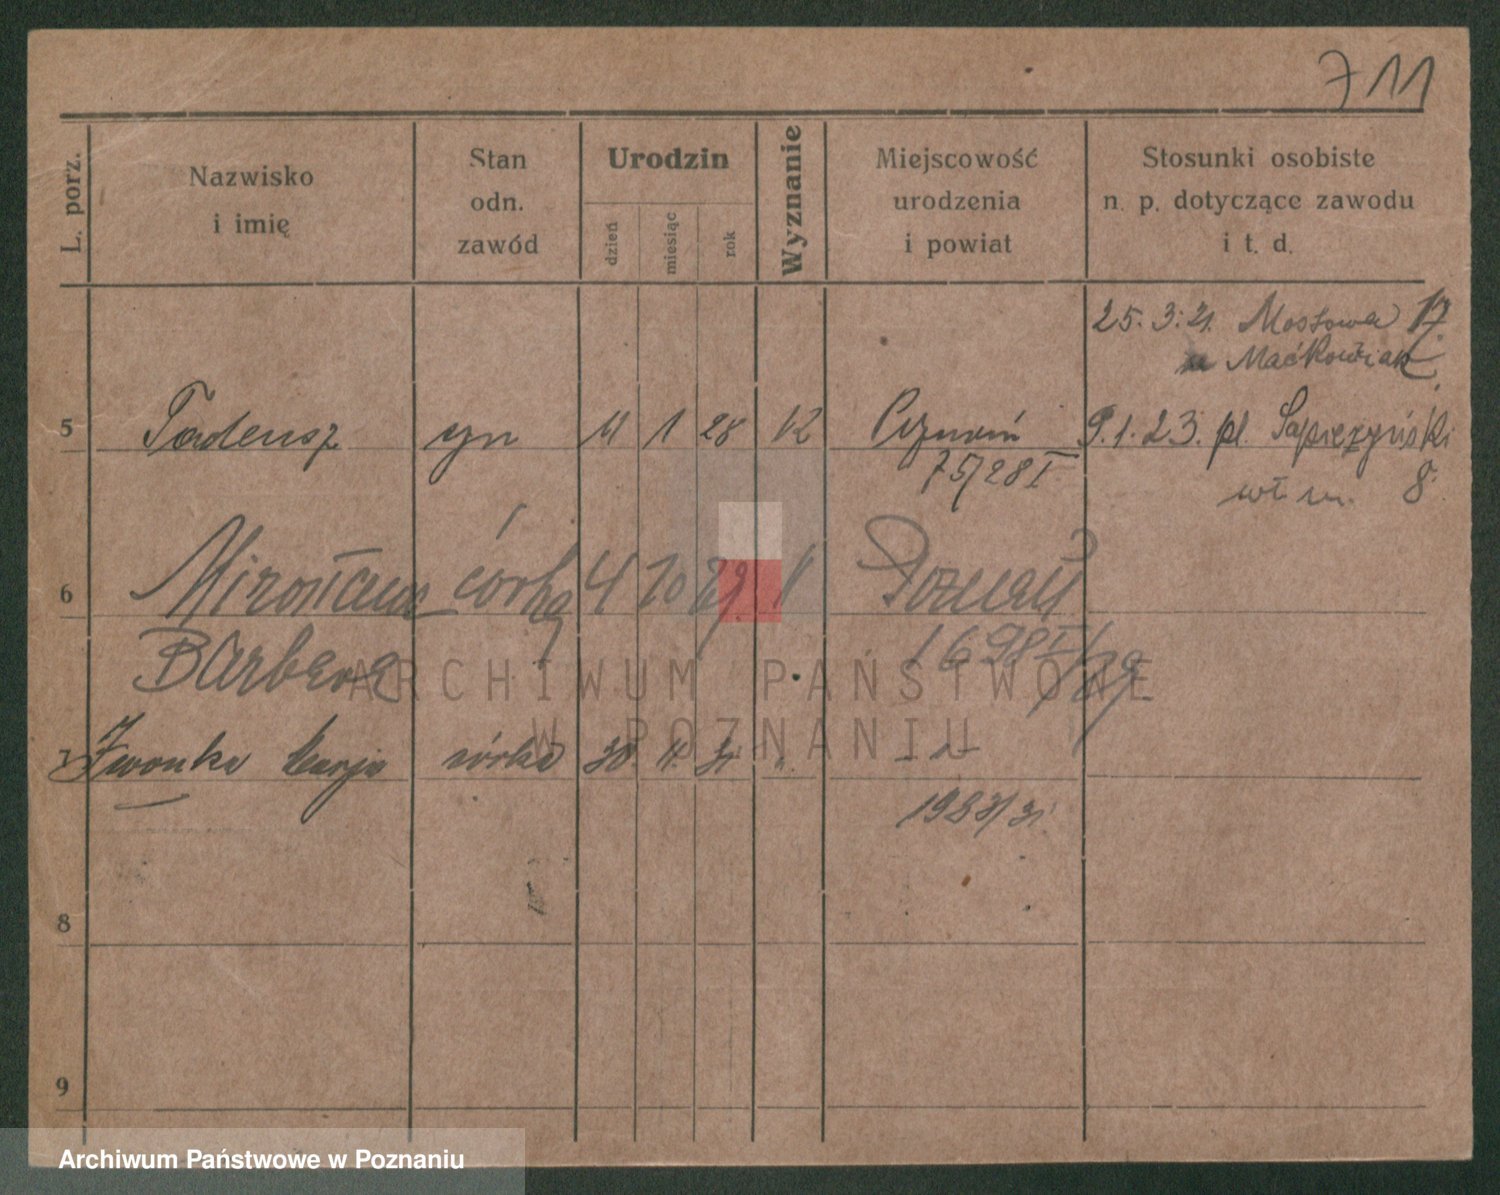 711
L. porz.
Nazwisko
i imię
Stan
odn.
zawód
Urodzin
dzień
miesiąc
rok
Wyznanie
Miejscowość
urodzenia
i powiat
Stosunki osobiste
n. p. dotyczące zawodu
i t. d.
25. 3. 21. Mostowa 17.
u Maćkowiak
5 Tadeusz syn 11 1 28 K Poznań 9.1.23. pl. Sapieżyński
75/28 I wł. m. 8
6 Mirosława córka 4 10 29 K Poznań
Barbara 1698 I/29
7 Iwonka Marja córka 30. 11. 31 " - " -
1983/31
8
9
ARCHIWUM PAŃSTWOWE
W POZNANIU
Archiwum Państwowe w Poznaniu